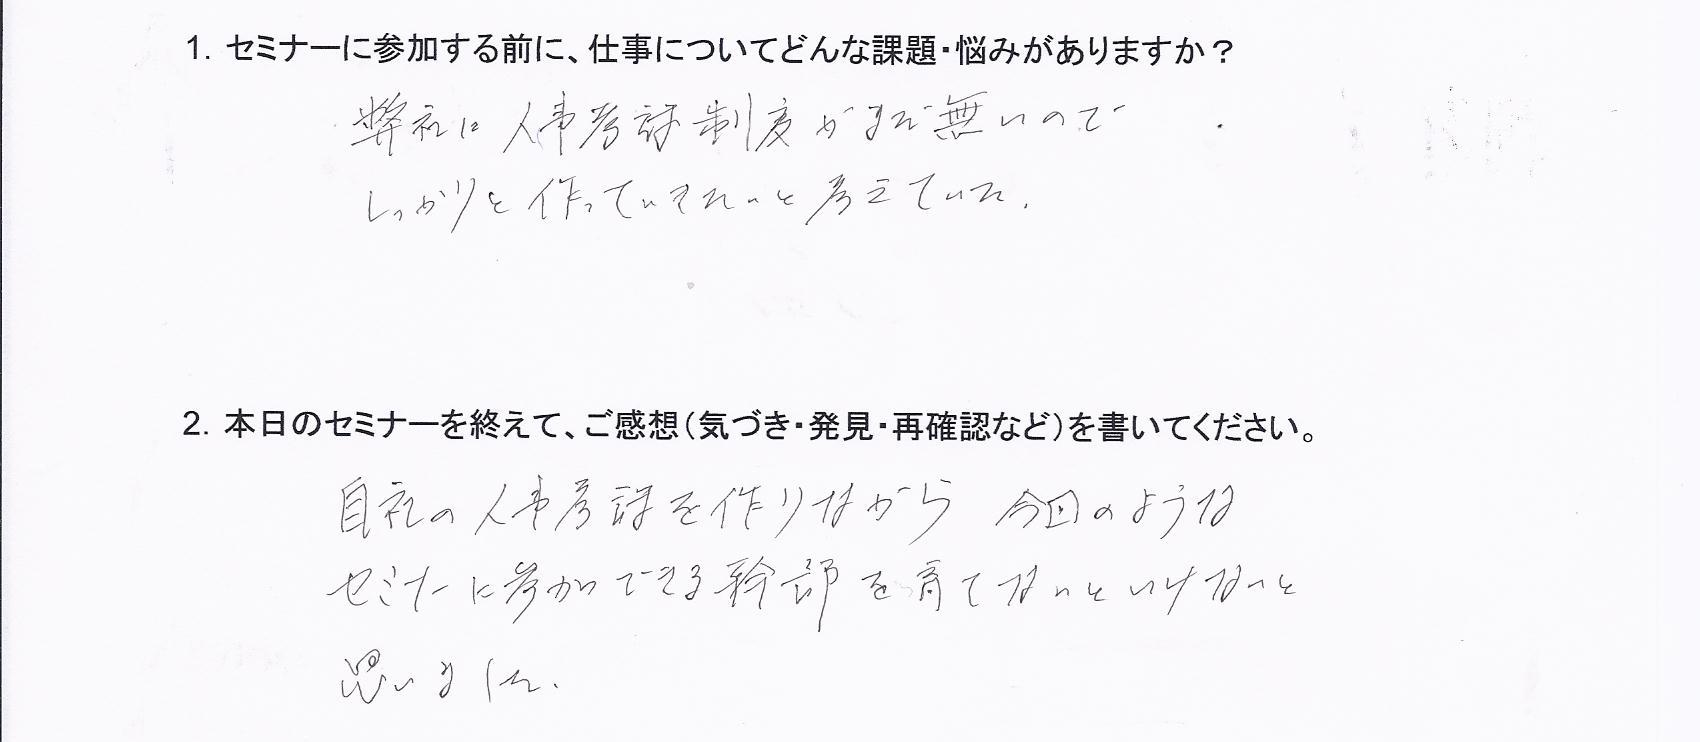 1. セミナーに参加する前に、仕事についてどんな課題・悩みがありますか？
弊社に人事考課制度がまだ無いので
しっかりと作っていきたいと考えていた.
2. 本日のセミナーを終えて、ご感想（気づき・発見・再確認など）を書いてください。
自社の人事考課を作りながら 今回のような
セミナーに参加できる幹部を育てないといけないと
思いました.